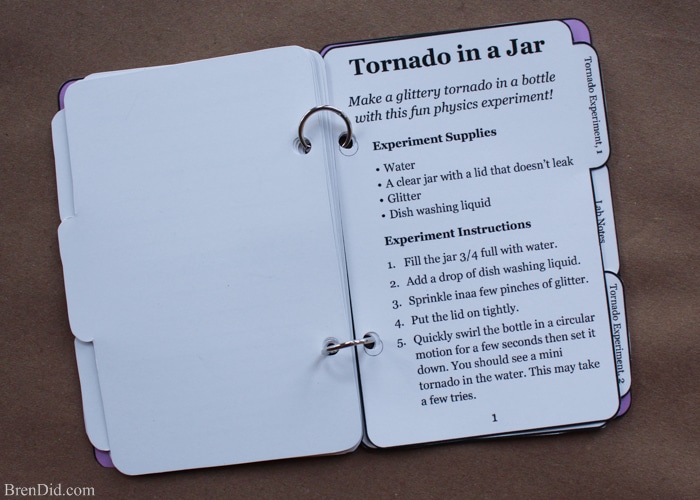 Tornado in a Jar
Make a glittery tornado in a bottle
with this fun physics experiment!
Experiment Supplies
• Water
• A clear jar with a lid that doesn't leak
• Glitter
• Dish washing liquid
Experiment Instructions
1. Fill the jar 3/4 full with water.
2. Add a drop of dish washing liquid.
3. Sprinkle inaa few pinches of glitter.
4. Put the lid on tightly.
5. Quickly swirl the bottle in a circular
motion for a few seconds then set it
down. You should see a mini
tornado in the water. This may take
a few tries.
1
Tornado Experiment, 1
Lab Notes
Tornado Experiment, 2
BrenDid.com